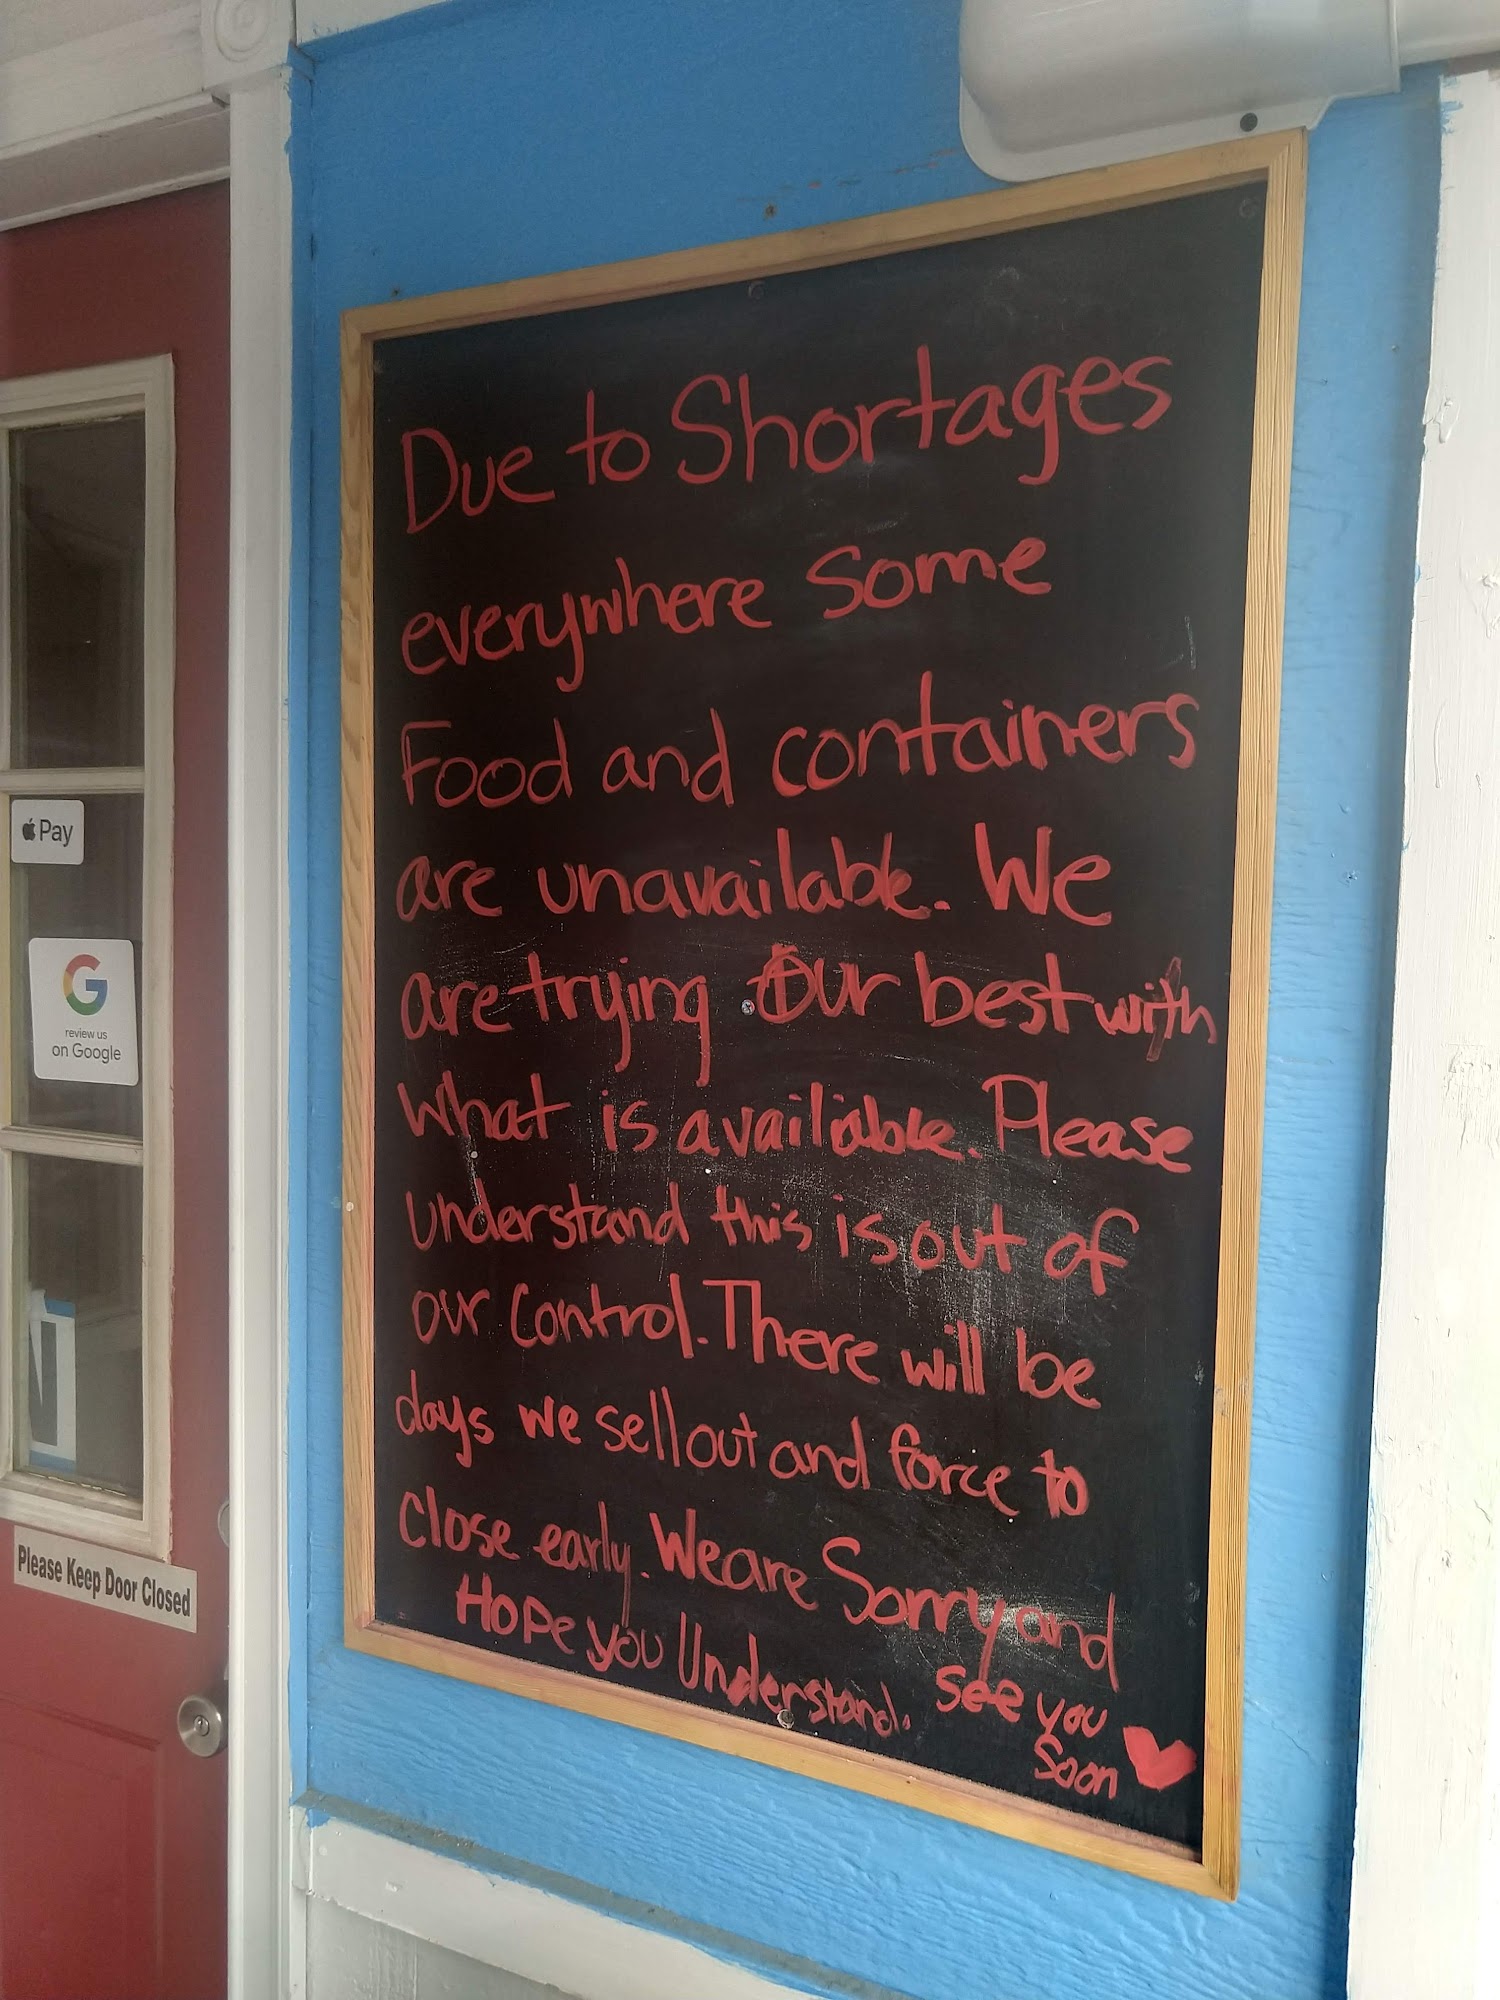 Due to Shortages
everywhere Some
Food and containers
are unavailable. We
are trying our best with
what is available. Please
understand this is out of
our control. There will be
days we sell out and force to
close early. We are Sorry and
Hope you Understand. See you
Soon
Pay
G
review us
on Google
Please Keep Door Closed